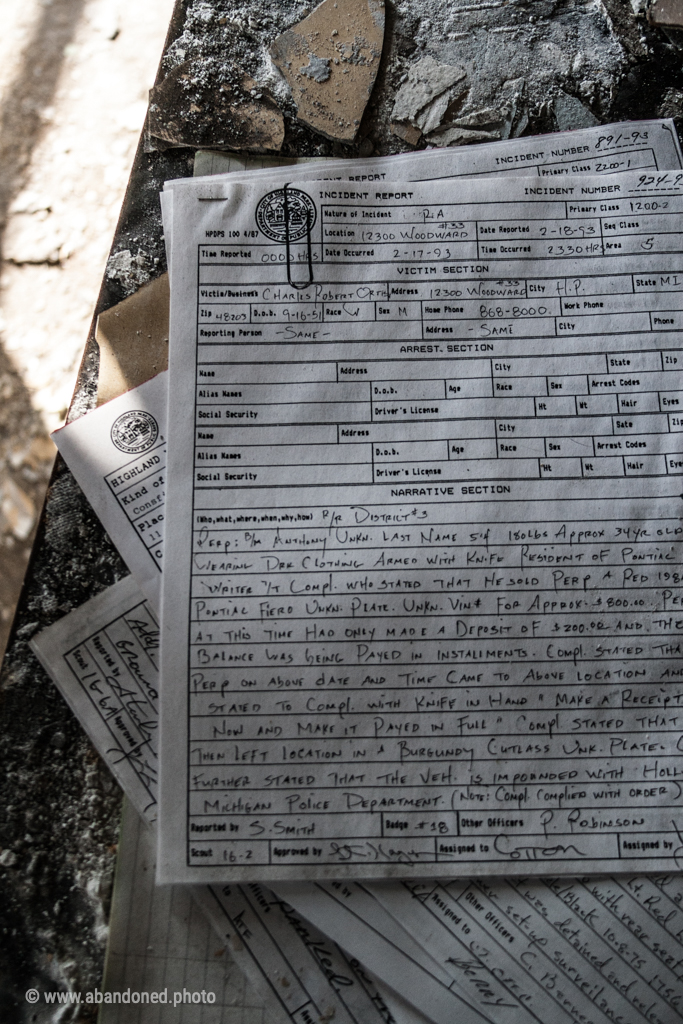 INCIDENT NUMBER 891-93
REPORT Primary Class 2200-1
INCIDENT REPORT INCIDENT NUMBER 924-9
HPDPS 100 4/87 Nature of Incident RA Primary Class 1200-2
Location 12300 WOODWARD #33 Date Reported 2-18-93 Sec Class
Time Reported 0000 HRS Date Occurred 2-17-93 Time Occurred 2330 HRS Area 5
VICTIM SECTION
Victim/Business CHARLES ROBERT Address 12300 WOODWARD #33 City H.P. State MI
Zip 48203 D.o.b. 9-16-51 Race W Sex M Home Phone 868-8000 Work Phone
Reporting Person -SAME- Address -SAME City Phone
ARREST SECTION
Name Address City State Zip
Alias Names D.o.b. Age Race Sex Arrest Codes
Social Security Driver's License Ht Wt Hair Eyes
Name Address City Sate Zip
Alias Names D.o.b. Age Race Sex Arrest Codes
Social Security Driver's License Ht Wt Hair Eyes
NARRATIVE SECTION
(Who,what,where,when,why,how) P/R DISTRICT #3
PERP: B/M ANTHONY UNKN. LAST NAME 5'9 180LBS APPROX 34YR OLD
WEARING DRK CLOTHING ARMED WITH KNIFE RESIDENT OF PONTIAC
WRITER T/T COMPL. WHO STATED THAT HE SOLD PERP A RED 198
PONTIAC FIERO UNKN. PLATE. UNKN. VIN# FOR APPROX. $800.00. PE
AT THIS TIME HAD ONLY MADE A DEPOSIT OF $200.00 AND THE
BALANCE WAS BEING PAYED IN INSTALMENTS. COMPL. STATED THA
PERP ON ABOVE DATE AND TIME CAME TO ABOVE LOCATION AND
STATED TO COMPL. WITH KNIFE IN HAND " MAKE A RECEIPT
NOW AND MAKE IT PAYED IN FULL " COMPL STATED THAT
THEN LEFT LOCATION IN A BURGUNDY CUTLASS UNK. PLATE. C
FURTHER STATED THAT THE VEH. IS IMPOUNDED WITH HOLL
MICHIGAN POLICE DEPARTMENT. (NOTE: COMPL. COMPLIED WITH ORDER)
Reported by S. SMITH Badge #18 Other Officers P. ROBINSON
Scout 16-2 Approved by Assigned to COTTON Assigned by
HIGHLAND
Kind of
Cons
Plac
11
Reported by
Scout 16-6A Approved
Assigned to
Other Officers C. Berne
BERRY
set-up surveilanc
was detained and rele
Black 10-8-75 1756
with rear seat
Lt. Red
© www.abandoned.photo